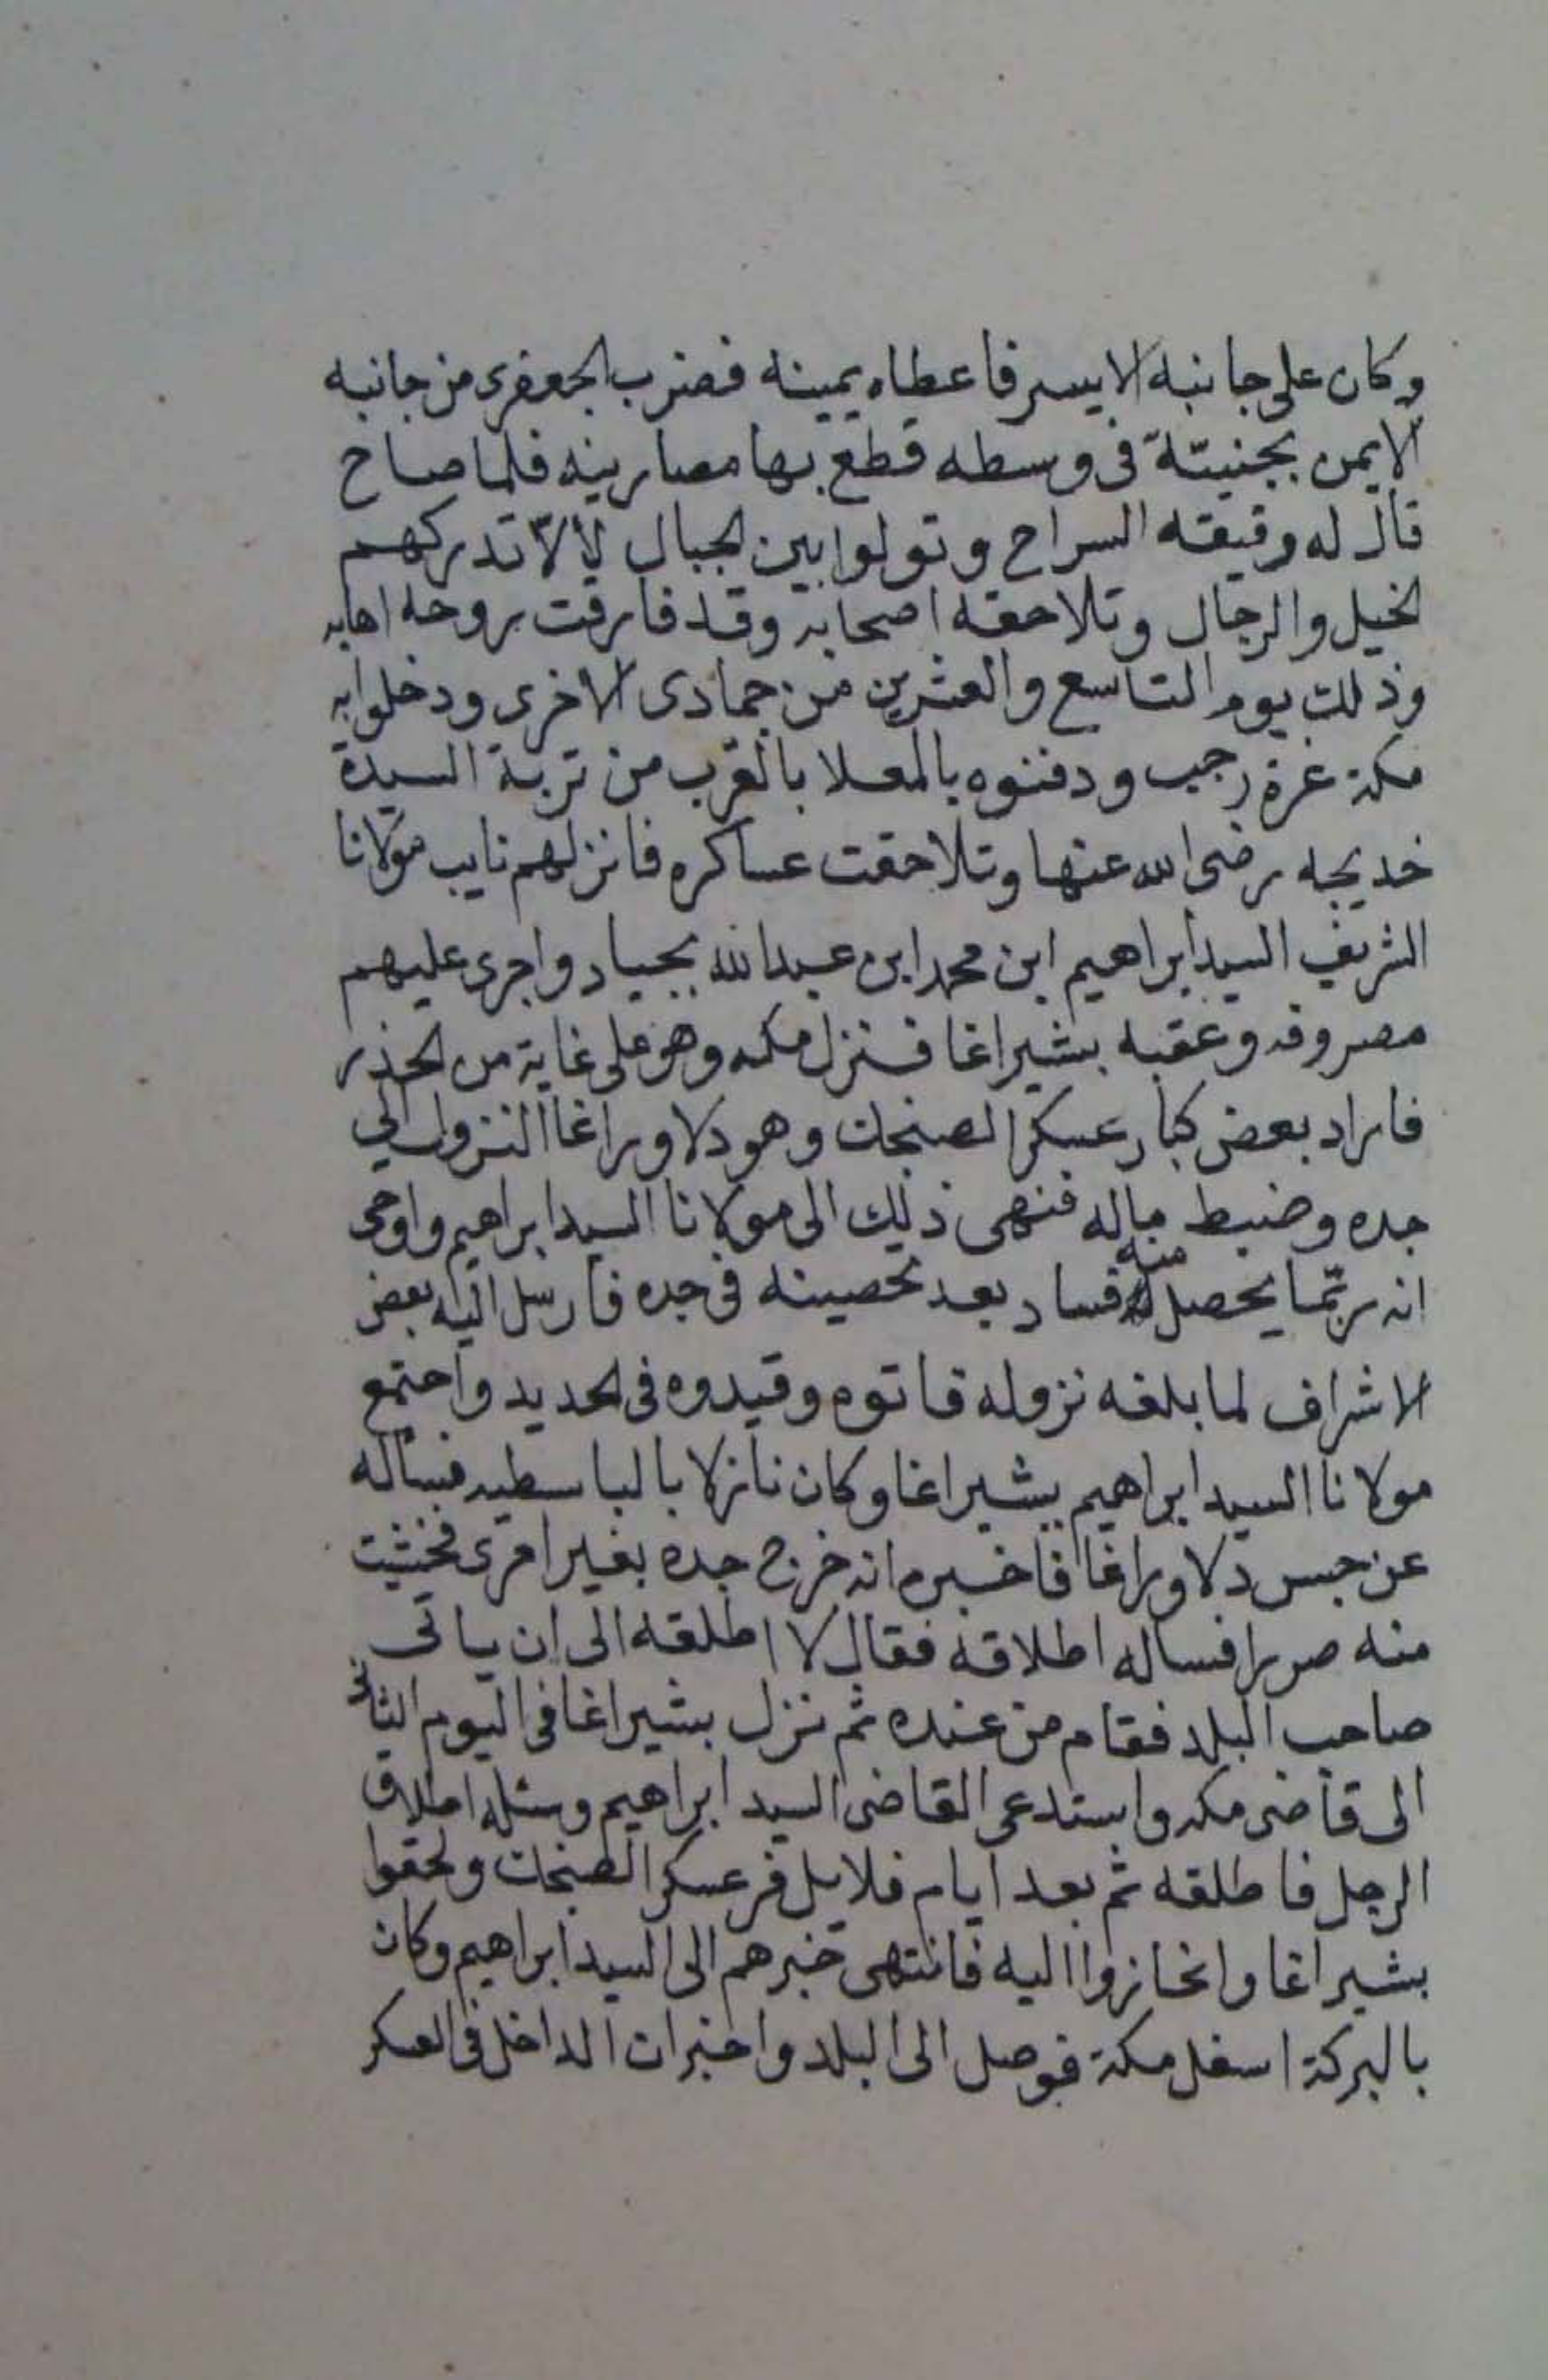 وكان على جانبه الايسر فاعطاه يمينه فضرب الجعفرى من جانبه
الايمن بجنبيّة فى وسطه قطع بها مصارينه فلما صاح
قال له رفيقه السراح وتولوا بين الجبال لألاّ تدركهم
الخيل والرجال وتلاحقه اصحابه وقد فارقت روحه اهابه
وذلك يوم التاسع والعشرين من جمادى الاخرى ودخلوا به
مكة غرة رجب ودفنوه بالمعلا بالقرب من تربة السيدة
خديجه رضى الله عنها وتلاحقت عساكره فانزلهم نايب مولانا
الشريف السيد ابراهيم ابن محمد ابن عبدالله بجياد واجرى عليهم
مصروفه وعقبه بشير اغا فنزل مكه وهو على غاية من الحذر
فاراد بعض كبار عسكر الصنجك وهو دلاور اغا النزول الي
جده وضبط ماله فنهى ذلك الى مولانا السيد ابراهيم واوحى
انه ربّما يحصل منه فساد بعد تحصينه فى جده فارسل اليه بعض
الاشراف لما بلغه نزوله فاتوه وقيدوه فى الحديد واجتمع
مولانا السيد ابراهيم بشير اغا وكان نازلا بالباسطيه فسأله
عن حبس دلاور اغا فاخبره انه خرج جده بغير امرى فخشيت
منه ضررا فساله اطلاقه فقال لا اطلقه الى ان ياتى
صاحب البلد فقام من عنده ثم نزل بشير اغا فى اليوم الثانى
الى قاضى مكه واستدعى القاضى السيد ابراهيم وسئله اطلاق
الرجل فاطلقه ثم بعد ايام قلايل فر عسكر الصنجك ولحقوا
بشير اغا وانحازوا اليه فانتهى خبرهم الى السيد ابراهيم وكان
بالبركة اسفل مكة فوصل الى البلد واخبر ان الداخل فى العسكر